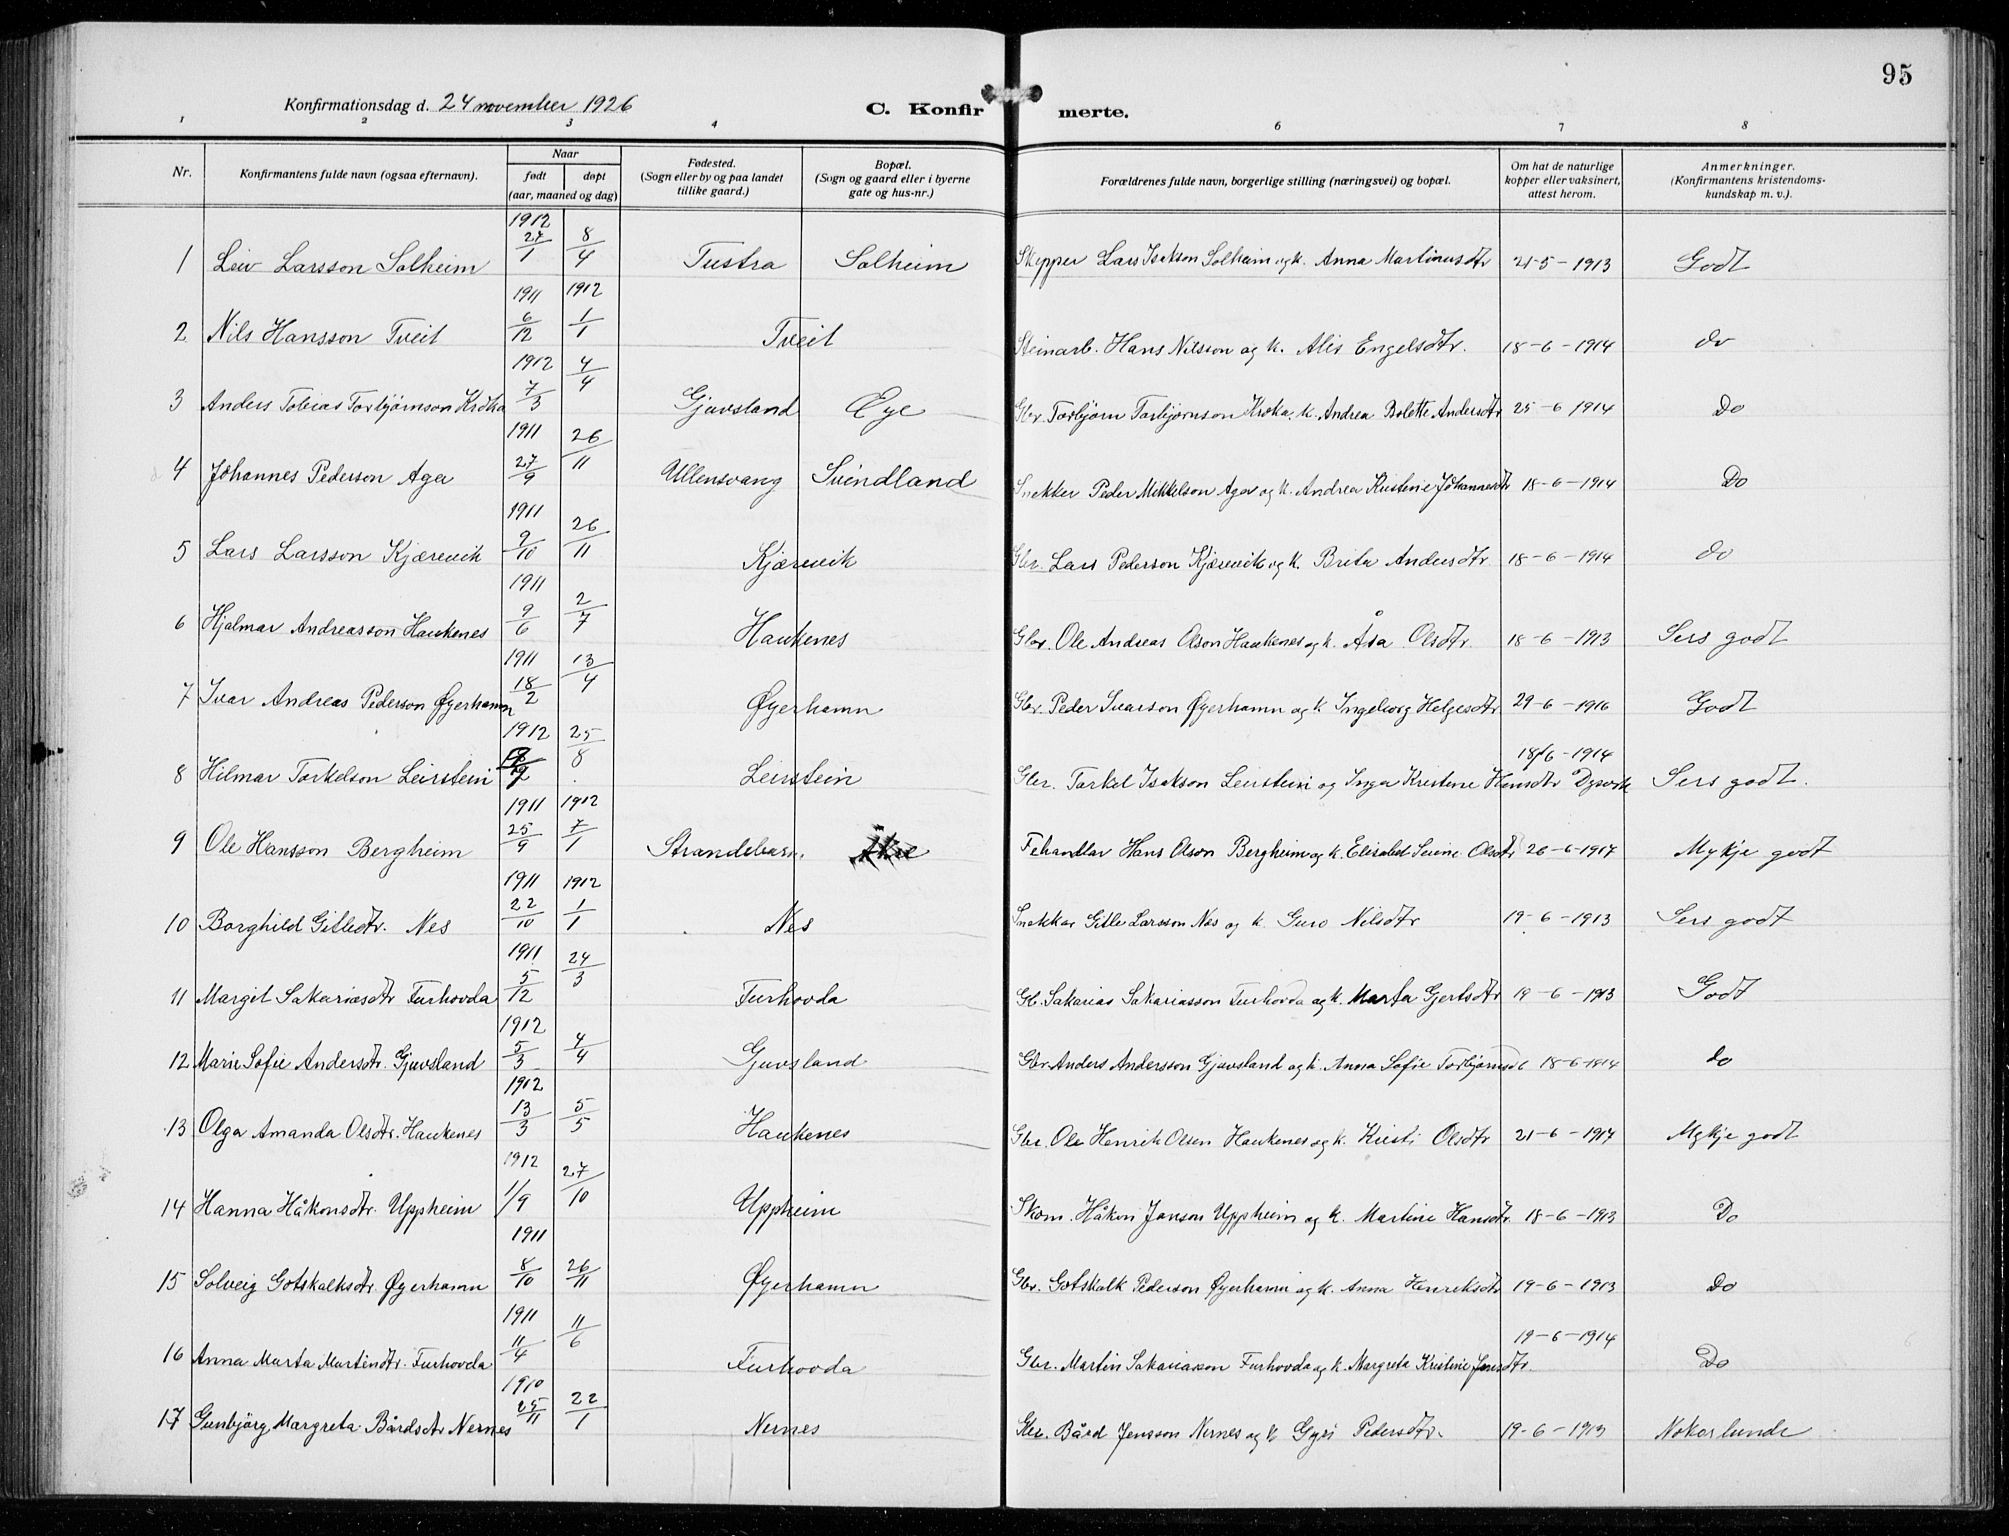 95
Konfirmationsdag d. 24 november 1926
C. Konfirmerte.
1 2 3 4 6 7 8
Nr. Konfirmantens fulde navn (ogsaa efternavn). Naar født døpt (aar, maaned og dag) Fødested. (Sogn eller by og paa landet tillike gaard.) Bopæl. (Sogn og gaard eller i byerne gate og hus-nr.) Forældrenes fulde navn, borgerlige stilling (næringsvei) og bopæl. Om hat de naturlige kopper eller vaksinert, attest herom. Anmerkninger. (Konfirmantens kristendoms-kundskap m. v.).
1 Leiv Larsson Solheim 1912 27/1 8/4 Tustra Solheim Skipper Lars Isakson Solheim og k. Anna Martinusdtr 21-5-1913 Godt
2 Nils Hansson Tveit 1911 6/12 1912 1/1 Tveit Steinarb. Hans Nilsson og k. Alis Engelsdtr. 18-6-1914 do
3 Anders Tobias Torbjørnson Kroka 1912 7/3 4/4 Gjuvsland Øye Gbr. Torbjørn Torbjørnson Kroka, k. Andrea Bolette Andersdtr 25-6 1914 Do
4 Johannes Pederson Aga 1911 27/9 26/11 Ullensvang Svindland Snekker Peder Mikkelson Aga og k. Andrea Kristine Johannesdtr 18-6-1914 Do
5 Lars Larsson Kjærevik 1911 9/10 26/11 Kjærevik Gbr. Lars Pederson Kjærevik og k. Brita Andersdtr 18-6-1914 do
6 Hjalmar Andreasson Haukenes 1911 9/6 2/7 Haukenes Gbr. Ole Andreas Olson Haukenes og k. Åsa Olsdtr. 18-6-1913 Sers godt
7 Ivar Andreas Pederson Øyerhamn 1911 18/2 13/4 Øyerhamn Gbr. Peder Ivarson Øyerhamn og k. Ingeborg Helgesdtr 29-6-1916 Godt
8 Hilmar Torkelson Leirstein 1912 25/8 Leirstein Gbr. Torkel Isakson Leirstein og Inga Kristine Hansdtr Dysvik 18/6-1914 Sers godt.
9 Ole Hansson Bergheim 1911 25/9 1912 7/1 Strandebarm. Fehandlar Hans Olson Bergheim og k. Elisabet Serine Olsdtr 26-6-1917 Mykje godt
10 Borghild Gitledtr. Nes 1911 22/10 1912 1/1 Nes Snekkar Gitle Larsson Nes og k. Guro Nilsdtr 19-6-1913 Sers godt
11 Margit Sakariasdtr Furhovda 1911 5/12 24/3 Furhovda Gb. Sakarias Sakariasson Furhovda og k. Marta Gjertsdtr 19-6-1913 Godt
12 Marie Sofie Andersdtr. Gjuvsland 1912 5/3 4/4 Gjuvsland Gbr. Anders Andersson Gjuvsland og k. Anna Sofie Torbjørnsd 18-6-1914 do
13 Olga Amanda Olsdtr. Haukenes 1912 13/3 5/5 Haukenes Gbr. Ole Henrik Olsen Haukenes og k. Kristi Olsdtr 21-6-1917 Mykje godt
14 Hanna Håkonsdtr. Uppheim 1912 1/9 27/10 Uppheim Skom. Håkon Janson Uppheim og k. Martine Hansdtr. 18-6-1913 Do
15 Solveig Gotskalksdtr. Øyerhamn 1911 8/10 26/11 Øyerhamn Gbr. Gotskalk Pederson Øyerhamn og k. Anna Henriksdtr 19-6-1913 Do
16 Anna Marta Martinsdtr. Furhovda 1911 11/4 11/6 Furhovda Gbr. Martin Sakariasson Furhovda og k. Margreta Kristine Jensdtr. 19-6-1914 Do
17 Gunbjørg Margreta Bårdsdtr Nernes 1910 25/11 22/1 Nernes Gbr. Bård Jensson Nernes og k Gyri Pedersdtr. 19-6-1913 Nokorlunde